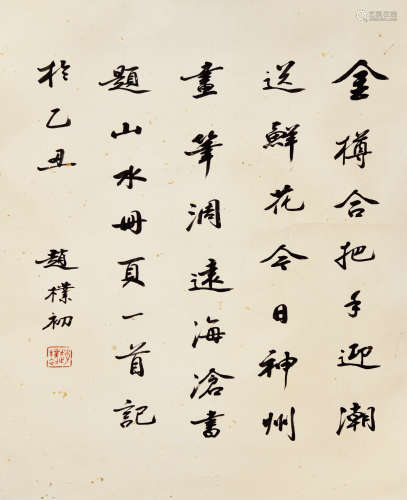 金樽合把手迎潮
送鮮花今日神州
畫筆潤遠海滄書
題山水冊頁一首記
於乙丑
趙樸初